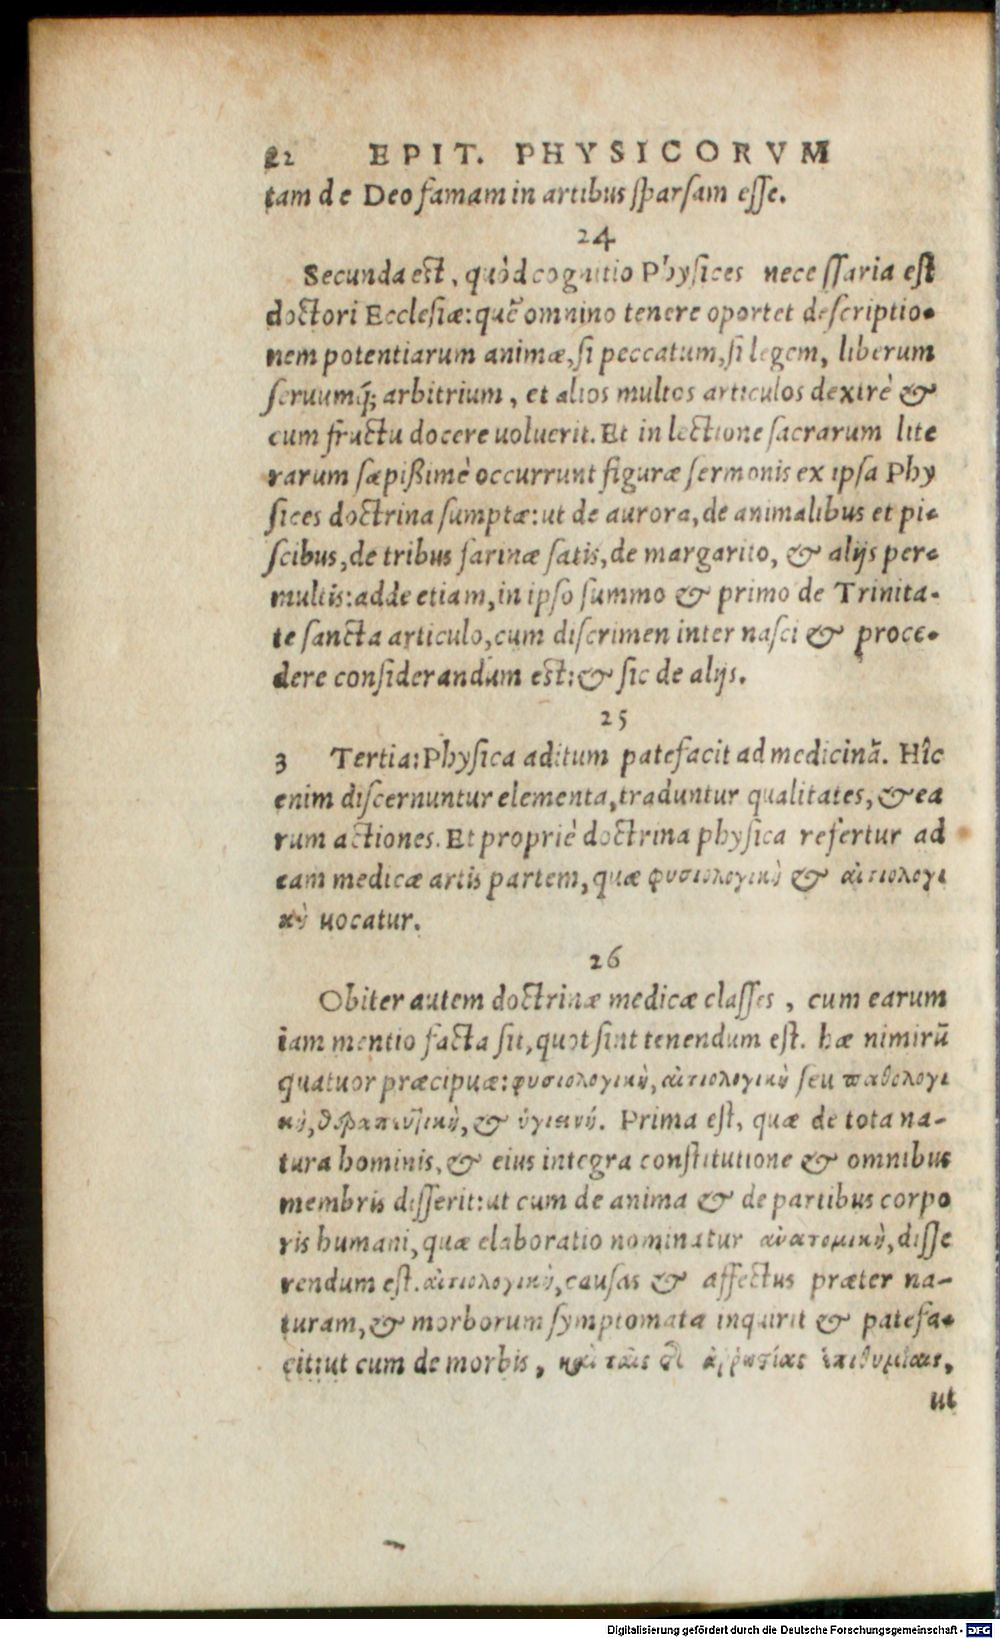 22 EPIT. PHYSICORVM
tam de Deo famam in artibus sparsam esse.
24
Secunda est, quòd cognitio Physices necessaria est
doctori Ecclesiæ: quẽ omnino tenere oportet descriptio-
nem potentiarum animæ, si peccatum, si legem, liberum
seruumq́; arbitrium, et alios multos articulos dextrè &
cum fructu docere uoluerit. Et in lectione sacrarum lite
rarum sæpißimè occurrunt figuræ sermonis ex ipsa Phy
sices doctrina sumptæ: ut de aurora, de animalibus et pi-
scibus, de tribus farinæ satis, de margarito, & alijs per-
multis: adde etiam, in ipso summo & primo de Trinita-
te sancta articulo, cum discrimen inter nasci & proce-
dere considerandum est: & sic de alijs.
25
3 Tertia: Physica aditum patefacit ad medicinã. Hîc
enim discernuntur elementa, traduntur qualitates, & ea
rum actiones. Et propriè doctrina physica refertur ad
eam medicæ artis partem, quæ φυσιολογικὴ & αἰτιολογι
κὴ uocatur.
26
Obiter autem doctrinæ medicæ classes, cum earum
iam mentio facta sit, quot sint tenendum est. hæ nimirũ
quatuor præcipuæ: φυσιολογικὴ, αἰτιολογικὴ seu παθολογι
κὴ, θεραπευτικὴ, & ὑγιεινή. Prima est, quæ de tota na-
tura hominis, & eius integra constitutione & omnibus
membris disserit: ut cum de anima & de partibus corpo
ris humani, quæ elaboratio nominatur ἀνατομικὴ, disse
rendum est. αἰτιολογικὴ, causas & affectus præter na-
turam, & morborum symptomata inquirit & patefa-
cit: ut cum de morbis, καὶ ταῖς δι᾽ ἀῤῥωστίας ἐπιθυμίαις,
ut
Digitalisierung gefördert durch die Deutsche Forschungsgemeinschaft - DFG